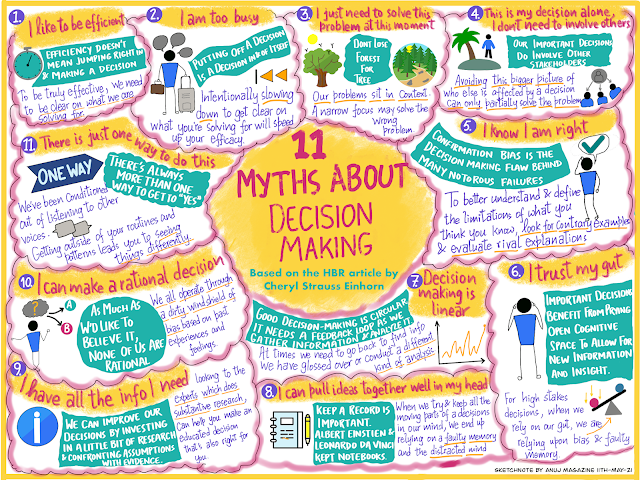 11
MYTHS ABOUT
DECISION
MAKING
Based on the HBR article by
Cheryl Strauss Einhorn
1.
I like to be efficient
EFFICIENCY DOESN'T
MEAN JUMPING RIGHT IN
& MAKING A DECISION
To be truly effective, we need
to be clear on what we are
solving for.
2.
I am too busy
PUTTING OFF A DECISION
IS A DECISION IN & OF ITSELF
Intentionally slowing
down to get clear on
what you're solving for will speed
up your efficacy.
3.
I just need to solve this
problem at this moment
DONT LOSE
FOREST
FOR
TREE
Our problems sit in Context.
A narrow focus may solve the
wrong
problem
4.
This is my decision alone,
I don't need to involve others
OUR IMPORTANT DECISIONS
DO INVOLVE OTHER
STAKEHOLDERS
Avoiding this bigger picture of
who else is affected by a decision
can only partially solve the problem
5.
I know I am right
CONFIRMATION BIAS IS THE
DECISION MAKING FLAW BEHIND
MANY NOTORIOUS FAILURES
To better understand & define
the limitations of what you
think you know, look for Contrary Examples
& evaluate rival explanations
6.
I trust my gut
IMPORTANT DECISIONS
BENEFIT FROM PRYING
OPEN COGNITIVE
SPACE TO ALLOW FOR
NEW INFORMATION
AND INSIGHT.
For high stakes
decisions, when we
rely on our gut, we are
relying upon bias & faulty
memory
7.
Decision
making is
linear
GOOD DECISION-MAKING IS CIRCULAR
IT NEEDS A FEEDBACK LOOP AS WE
GATHER INFORMATION & ANALYZE IT.
At times we need to go back to find info
we have glossed over or conduct a different
kind of analysis
8.
I can pull ideas together well in my head
KEEP A RECORD IS
IMPORTANT.
ALBERT EINSTEIN &
LEONARDO DA VINCI
KEPT NOTEBOOKS.
When we try & keep all the
moving parts of a decisions
in our mind, we end up
relying on a faulty memory
and the distracted mind
9.
I have all the info I need
i
WE CAN IMPROVE OUR
DECISIONS BY INVESTING
IN A LITTLE BIT OF RESEARCH
& CONFRONTING ASSUMPTIONS
WITH EVIDENCE.
looking to the
Experts which does
substantive research,
Can help you make an
educated decision
that's also right for
you
10.
I can make a rational decision
?
A
B
AS MUCH AS
WE'D LIKE TO
BELIEVE IT,
NONE OF US ARE
RATIONAL
We all operate through
a dirty windshield of
bias based on past
experiences and
feelings
11.
There is just one way to do this
ONE WAY
THERE'S ALWAYS
MORE THAN ONE
WAY TO GET TO "YES"
We've been Conditioned
out of listening to other
voices.
Getting outside of your routines and
patterns leads you to seeing
things differently.
SKETCHNOTE BY ANUJ MAGAZINE 11TH-MAY-21